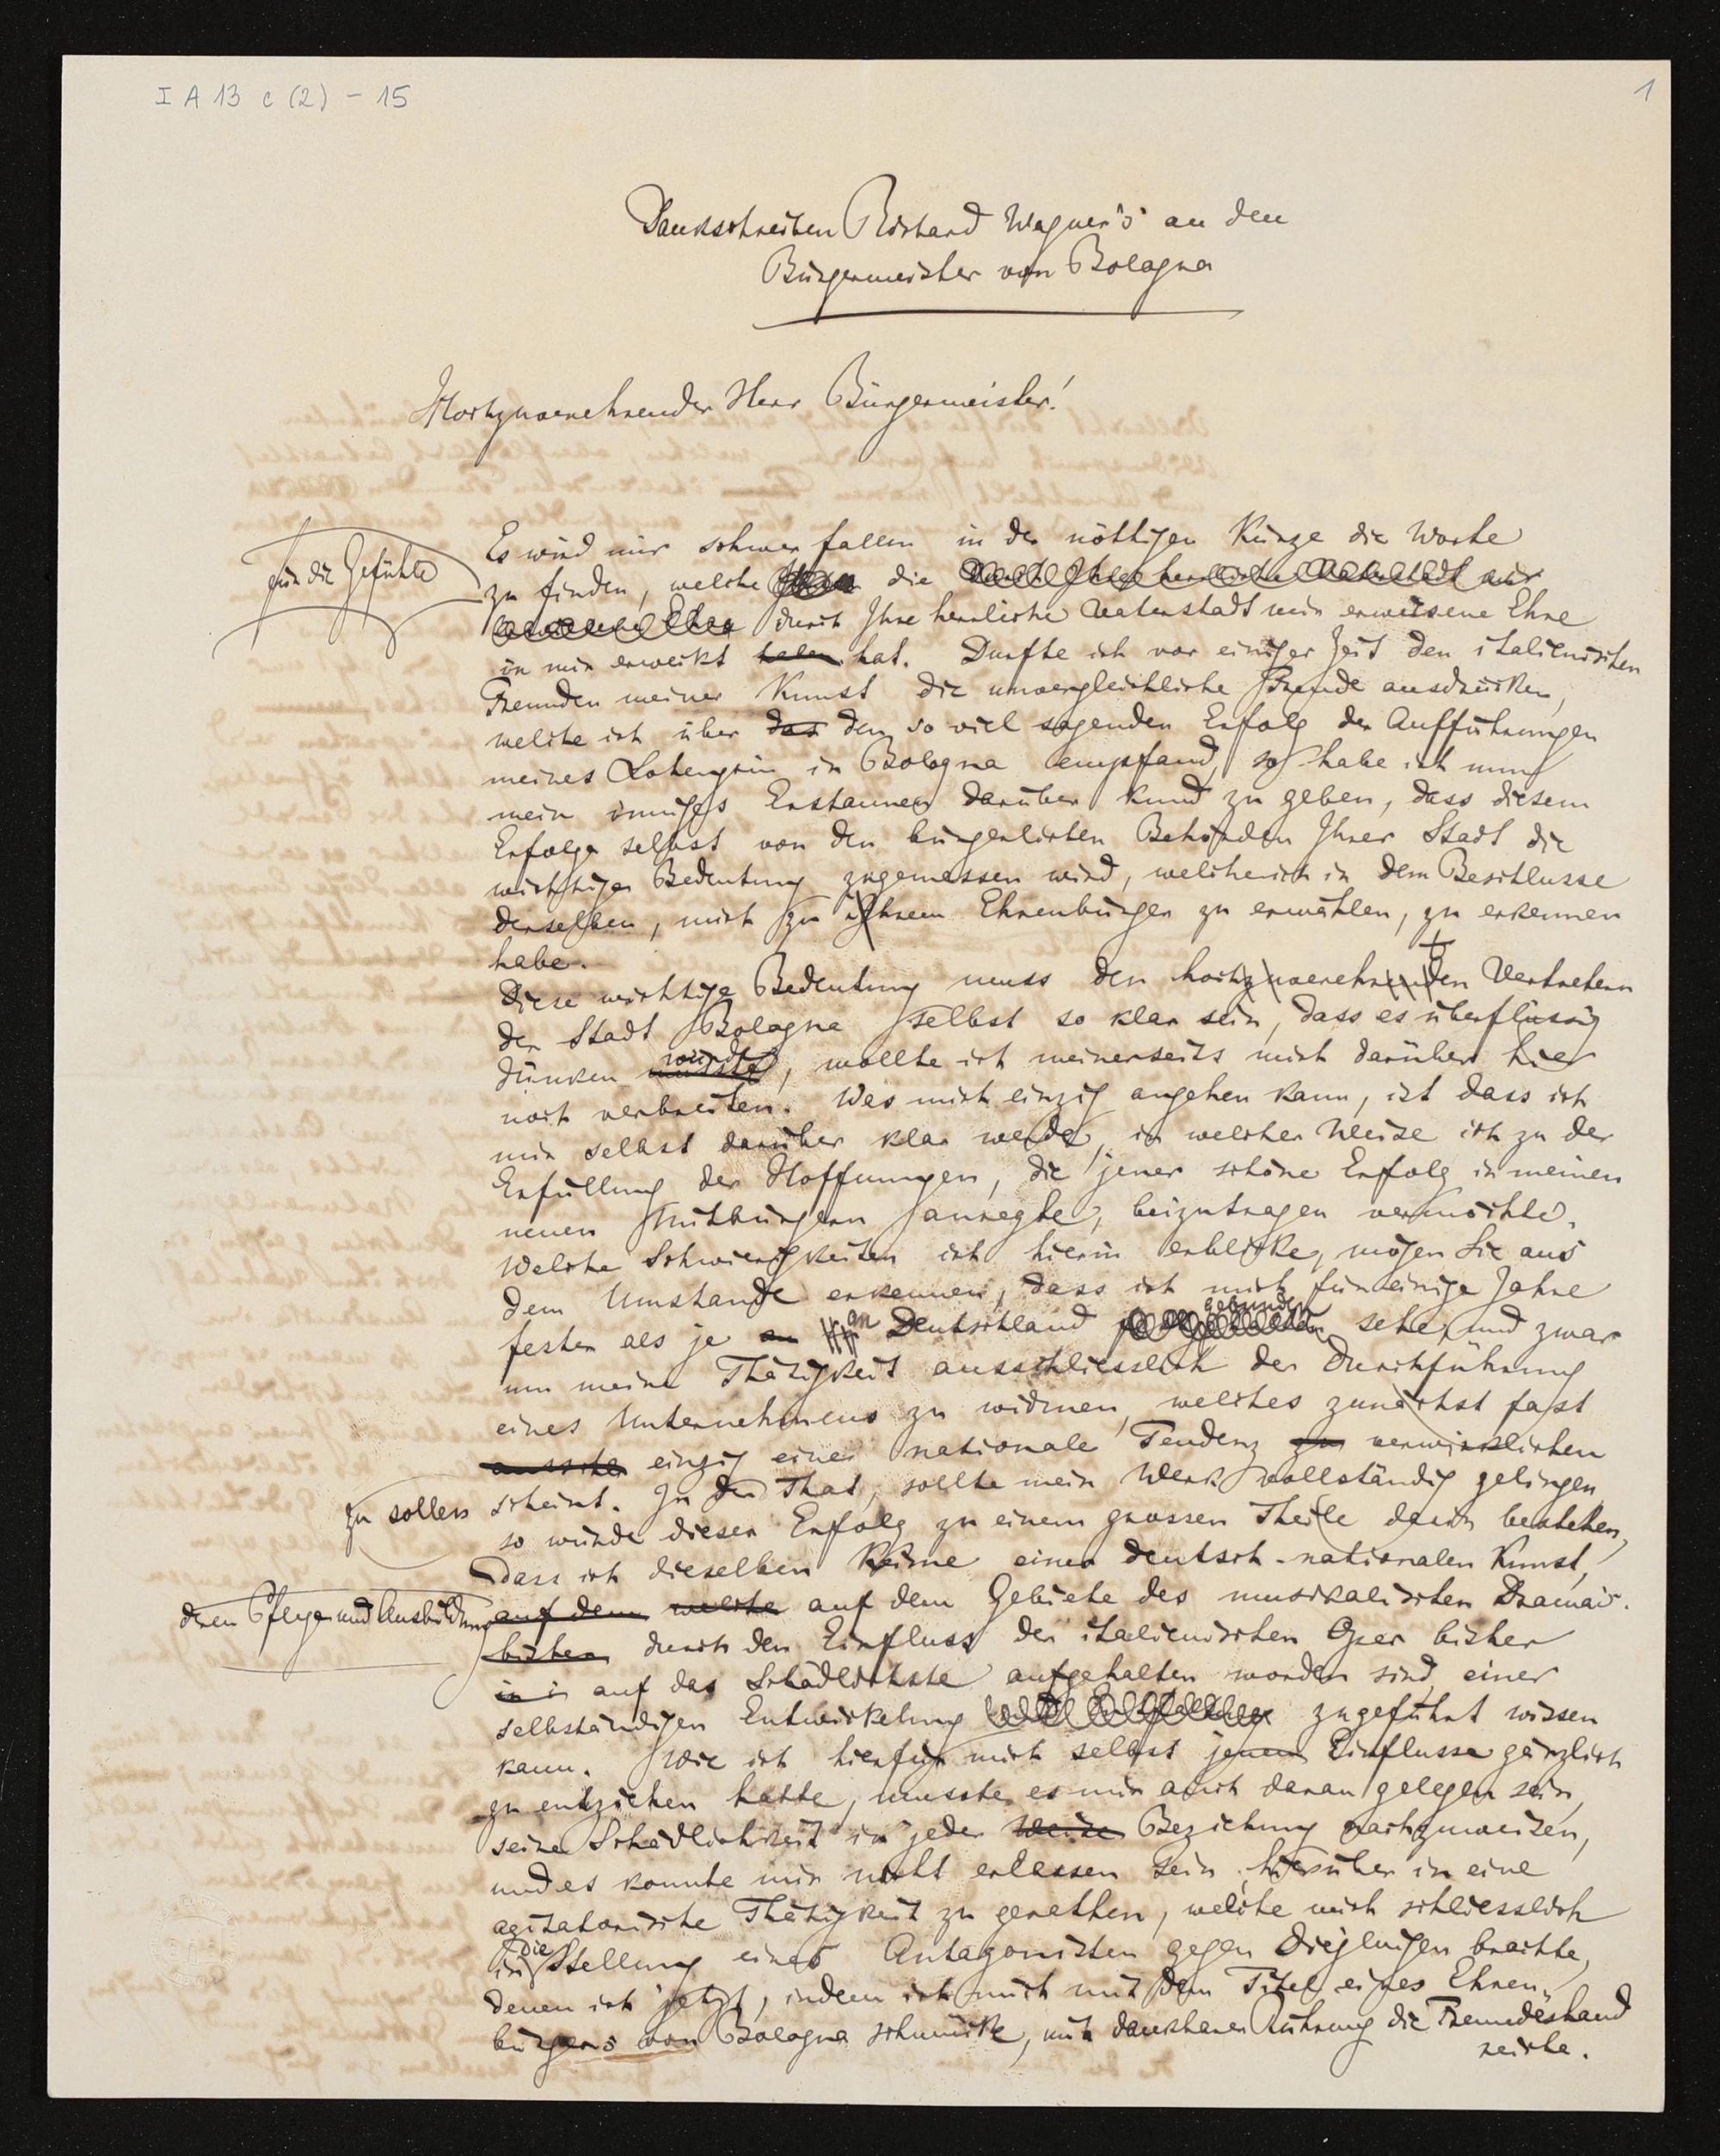 I A 13 c (2) – 15
1
Dankschreiben Richard Wagner's an den
Bürgermeister von Bologna
Hochzuverehrender Herr Bürgermeister!
Es wird mir schwer fallen in der nöthigen Kürze die Worte
für die Gefühle
zu finden, welche die durch Ihre herrliche Vaterstadt mir
erwiesene Ehre durch Ihre herrliche Vaterstadt mir erwiesene Ehre
in mir erweckt haben hat. Durfte ich vor einiger Zeit den italienischen
Freunden meiner Kunst die unvergleichliche Freude ausdrücken,
welche ich über das den so viel sagenden Erfolg der Aufführungen
meines Lohengrin in Bologna empfand, so habe ich nun
mein inniges Erstaunen darüber kund zu geben, dass diesem
Erfolge selbst von den bürgerlichen Behörden Ihrer Stadt die
wichtige Bedeutung zugemessen wird, welche ich in dem Beschlusse
derselben, mich zu ihrem Ehrenbürger zu erwählen, zu erkennen
habe.
Diese wichtige Bedeutung muss den hochzuverehrenden Vertretern
der Stadt Bologna selbst so klar sein, dass es überflüssig
dünken müsste würde, wollte ich meinerseits mich darüber hier
noch verbreiten. Was mich einzig angehen kann, ist dass ich
mir selbst darüber klar werde, in welcher Weise ich zu der
Erfüllung der Hoffnungen, die jener schöne Erfolg in meinen
neuen Mitbürgern anregte, beizutragen vermöchte.
Welche Schwierigkeiten ich hierin erblicke, mögen Sie aus
dem Umstande erkennen, dass ich mich für einige Jahre
fester als je an an Deutschland gebunden sehe, und zwar
um meine Thätigkeit ausschliesslich der Durchführung
eines Unternehmens zu widmen, welches zunächst fast
einzig eine nationale Tendenz zu verwirklichen
zu sollen
scheint. In der That, sollte mein Werk vollständig gelingen
so würde dieser Erfolg zu einem grossen Theile darin bestehen,
dass ich dieselben Keime einer deutsch-nationalen Kunst,
deren Pflege und Ausbildung
auf dem welche auf dem Gebiete des musikalischen Drama's
bisher durch den Einfluss der italienischen Oper bisher
in i auf das Schädlichste aufgehalten worden sind, einer
selbständigen Entwickelung zugeführt wissen
kann. Wie ich hierfür mich selbst jenem Einflusse gänzlich
zu entziehen hatte, musste es mir auch daran gelegen sein,
seine Schädlichkeit in jeder Weise Beziehung nachzuweisen,
und es konnte mir nicht erlassen sein, hierüber in eine
agitatorische Thätigkeit zu gerathen, welche mich schliesslich
in die Stellung eines Antagonisten gegen diejenigen brachte,
denen ich jetzt, indem ich mich mit dem Titel eines Ehren-
bürgers von Bologna schmücke, mit dankbarer Rührung die Freundeshand
reiche.